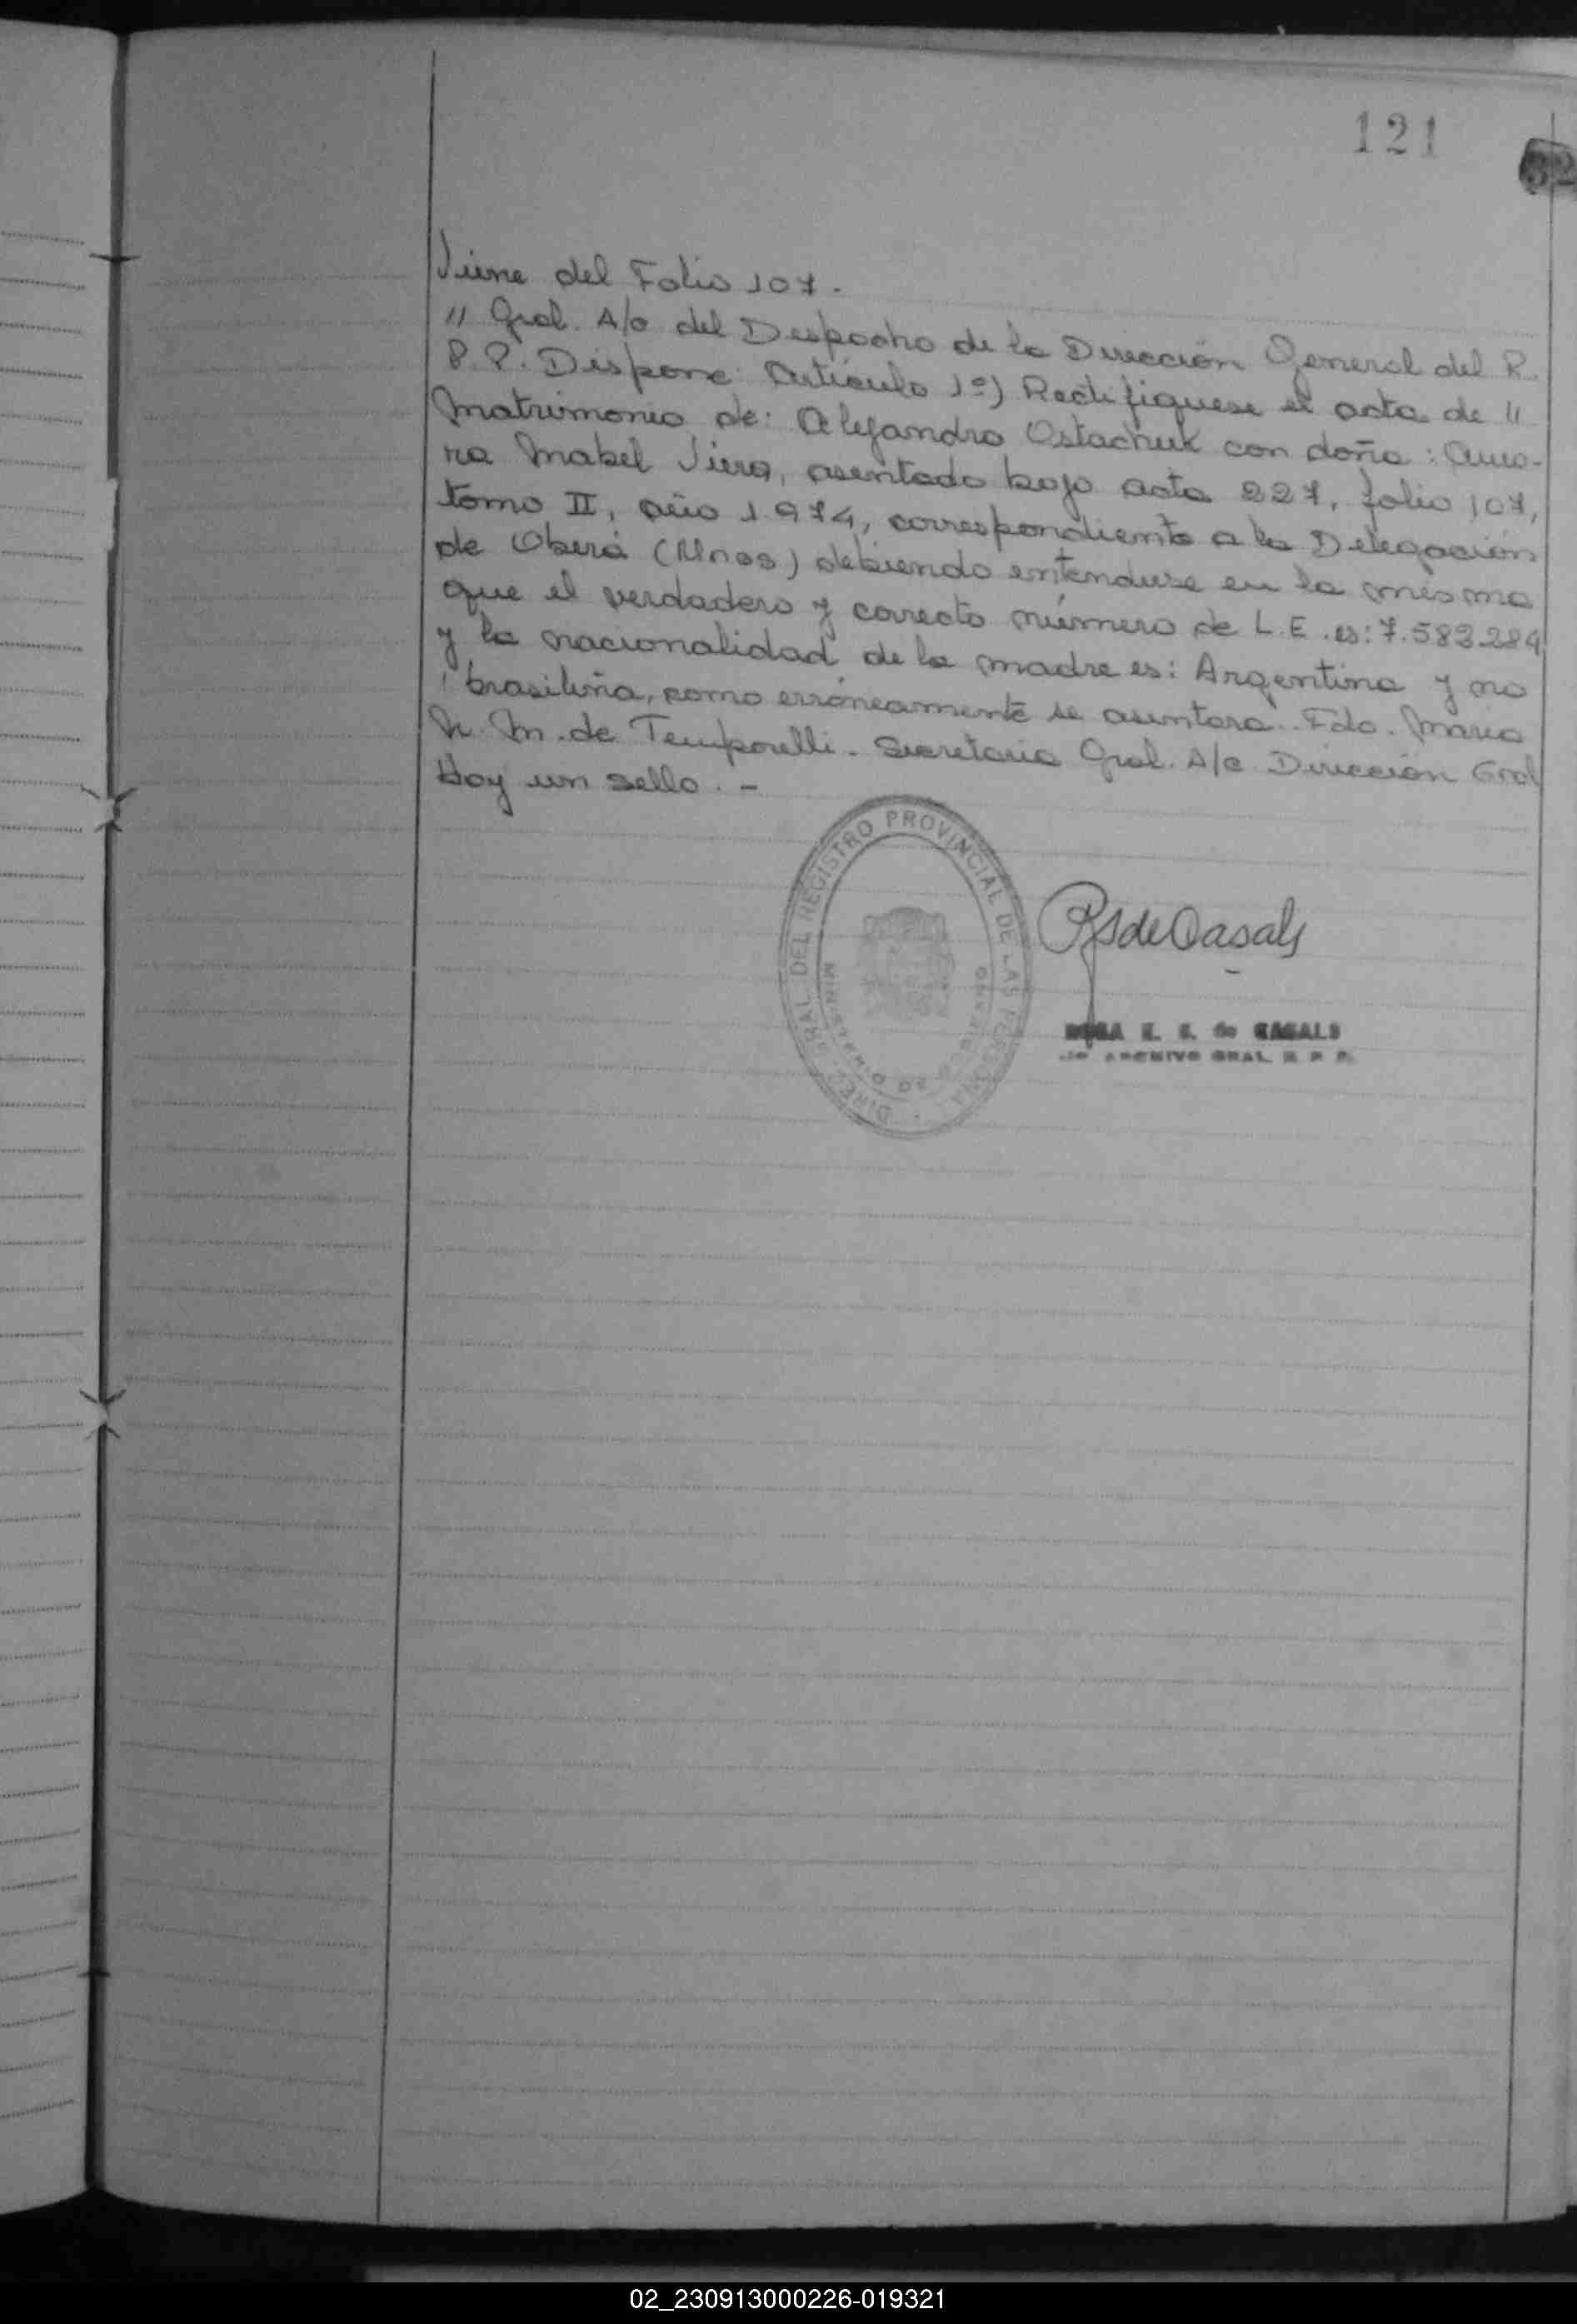 121
Viene del Folio 107.
" Gral. A/c del Despacho de la Dirección General del R.
P. P. Dispone: Artículo 1º) Rectifíquese el acta de "
Matrimonio de: Alejandro Ostachuk con doña: Auro-
ra Mabel Viera, asentado bajo acta 227, folio 107,
tomo II, año 1974, correspondiente a la Delegación
de Oberá (Mnes) debiendo entenderse en la misma
que el verdadero y correcto número de L.E. es: 7.583.284
y la nacionalidad de la madre es: Argentina y no
brasileña, como erróneamente se asentara. Fdo. Maria
N. M. de Temporelli - Secretaria Gral. A/c Dirección Gral
Hay un sello. -
DIREC. GRAL. DEL REGISTRO PROVINCIAL DE LAS PERSONAS
RS de Casals
ROSA E. S. de CASALS
ARCHIVO GRAL. R. P. P.
02_230913000226-019321